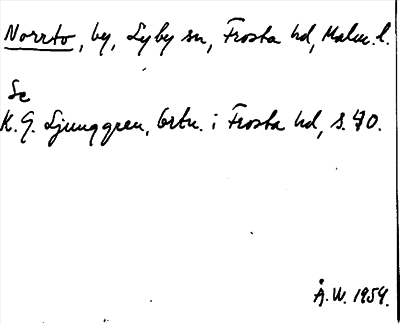 Norrto, by, Lyby sn, Frosta hd, Malm. l.
Se
K. G. Ljunggren, Ortn. i Frosta hd, s. 70.
Å. W. 1954.